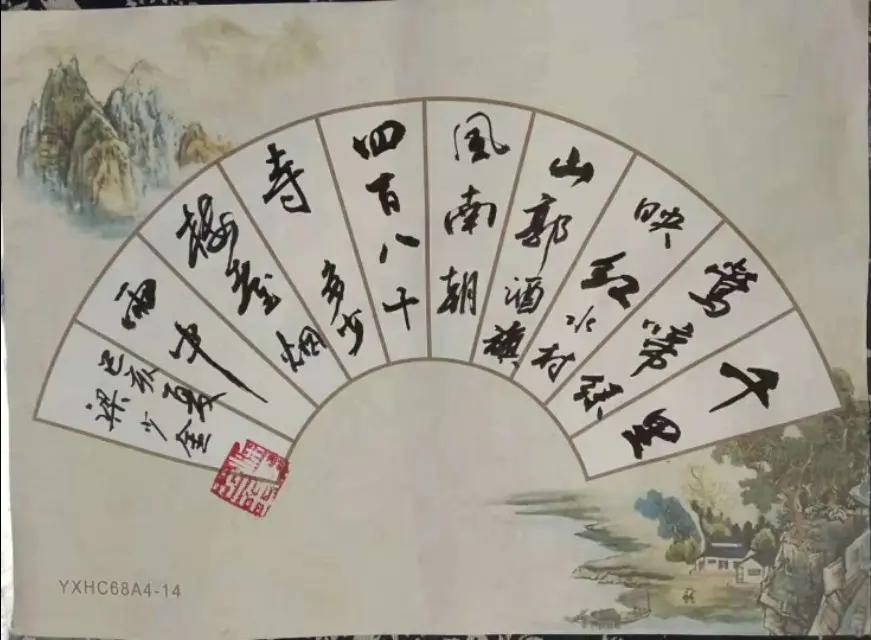 千里
莺啼绿
映红水村
山郭酒旗
风南朝
四百八十
寺多少
楼台烟
雨中
己亥夏
梁少金
YXHC68A4-14